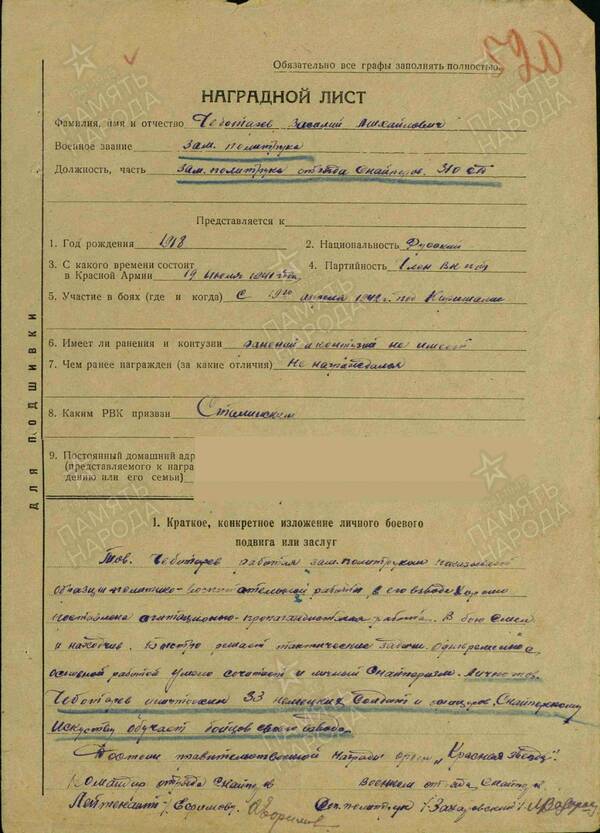 Обязательно все графы заполнять полностью.
НАГРАДНОЙ ЛИСТ
Фамилия, имя и отчество Чеботарев Михайлович
Военное звание зам. политрука
Должность, часть зам. политрука отряда снайперов. 310 сд
Представляется к
1. Год рождения 1918
2. Национальность Русский
3. С какого времени состоит
в Красной Армии 19 июля 1941 года
4. Партийность Член ВКП(б)
5. Участие в боях (где и когда) с апреля 1942 г. под Киришами
6. Имеет ли ранения и контузии ранений и контузий не имеет
7. Чем ранее награжден (за какие отличия) Не награждался
8. Каким РВК призван Сталинским
9. Постоянный домашний адр
(представляемого к награ
дению или его семьи)
ДЛЯ ПОДШИВКИ
1. Краткое, конкретное изложение личного боевого
подвига или заслуг
Тов. Чеботарев работая зам. политруком показывает
образцы политико-воспитательной работы в его взводе хорошо
построена агитационно-пропагандистская работа. В бою смел
и находчив. Быстро решает тактические задачи. Одновременно с
основной работой умело сочетает и личный снайперизм. Лично тов.
Чеботарев уничтожил 33 немецких солдат и офицеров. Снайперскому
искусству обучает бойцов своего взвода.
Достоин правительственной награды орден „Красная звезда".
Командир отряда снайперов
Военком отряда снайперов
Лейтенант /Ефимов/
политрук /Захаровский/
ПАМЯТЬ НАРОДА